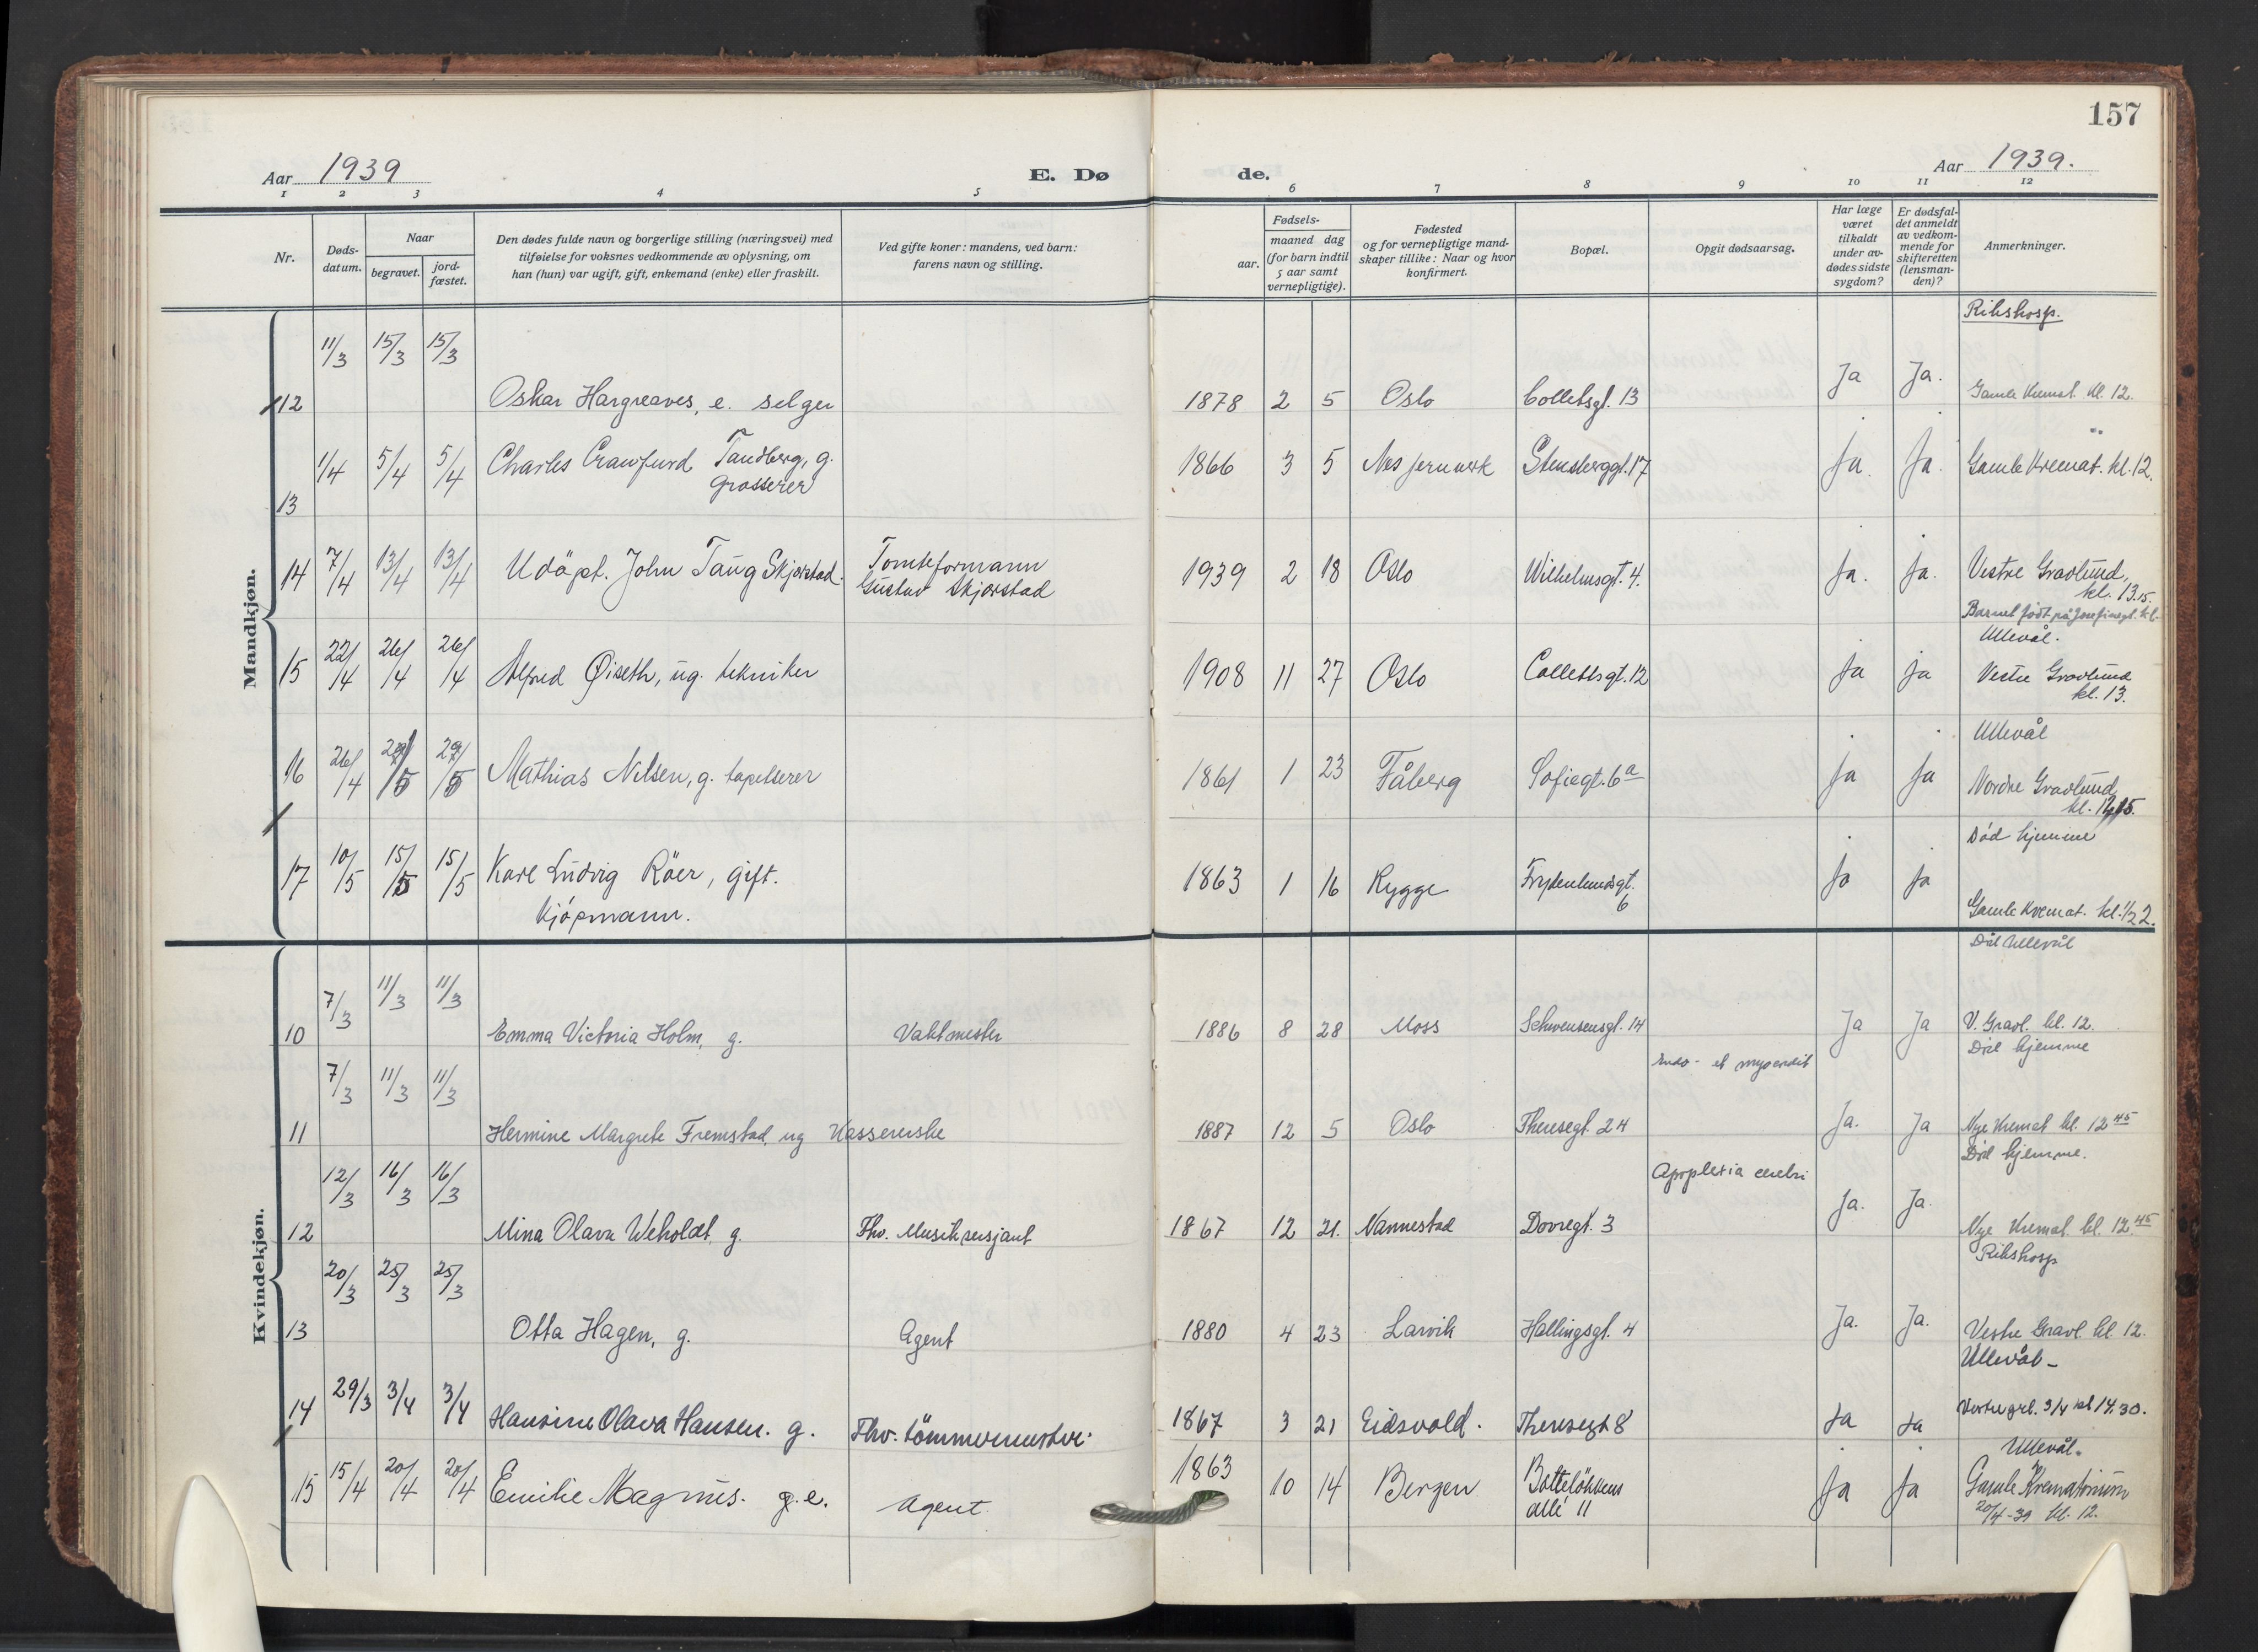 157
Aar 1939 E. Dø de. Aar 1939.
1 2 3 4 5 6 7 8 9 10 11 12
Nr.
Døds-
datum.
Naar
begravet.
jord-
fæstet.
Den dødes fulde navn og borgerlige stilling (næringsvei) med
tilføielse for voksnes vedkommende av oplysning, om
han (hun) var ugift, gift, enkemand (enke) eller fraskilt.
Ved gifte koner: mandens, ved barn:
farens navn og stilling.
Fødsels-
aar.
maaned dag
(for barn indtil
5 aar samt
vernepligtige).
Fødested
og for vernepligtige mand-
skaper tillike: Naar og hvor
konfirmert.
Bopæl.
Opgit dødsaarsag.
Har læge
været
tilkaldt
under av-
dødes sidste
sygdom?
Er dødsfal-
det anmeldt
av vedkom-
mende for
skifteretten
(lensman-
den)?
Anmerkninger.
Mandkjøn.
Rikshosp.
11/3 15/3 15/3
12 Oskar Hargreaves, e. selger 1878 2 5 Oslo Colletsgt. 13 Ja Ja. Gamle Kremat. kl. 12.
1/4 5/4 5/4 Charles Crawfurd Tandberg, g. 1866 3 5 Nes jernverk Stensberggt. 17 Ja. Ja. Gamle Kremat. kl. 12.
13 grosserer
14 7/4 13/4 13/4 Udöpt. John Taug Skjørstad. Tomteformann 1939 2 18 Oslo Wilhelmsgt. 4. Ja. Ja. Vestre Gravlund,
Gustav Skjørstad kl. 13.15.
Barnet födt på Josefinesgt. kl.
Ullevål.
15 22/4 26/4 26/4 Alfred Øiseth, ug. tekniker 1908 11 27 Oslo Collettsgt. 12 Ja Ja Vestre Gravlund
kl. 13.
Ullevål
16 26/4 2/5 2/5 Mathias Nilsen, g. tapetserer 1861 1 23 Fåberg Sofiegt. 6a Ja Ja Nordre Gravlund
kl. 12,15.
Död hjemme
17 10/5 15/5 15/5 Karl Ludvig Röer, gift. 1863 1 16 Rygge Frydenlundsgt. Ja Ja
Kjöpmann. 6 Gamle Kremat. kl. 1/2 2.
Kvindekjøn.
Död Ullevål
7/3 11/3 11/3
10 Emma Victoria Holm, g. Vaktmester 1886 8 28 Moss Schwensensgt. 14 Ja Ja V. Gravl. kl. 12.
Död hjemme
7/3 11/3 11/3 Endo- et myocardit
11 Hermine Margrete Fremstad, ug Kassererske 1887 12 5 Oslo Theresegt. 24 Ja. Ja Nye Kremat kl. 12 45
Död hjemme.
12/3 16/3 16/3 Apoplexia cerebri
12 Mina Olava Weholdt, g. Fhv. Musiksersjant 1867 12 21. Nannestad Dovregt. 3 Ja. Ja. Nye Kremat. kl. 12.45
Rikshosp
20/3 25/3 25/3
13 Otta Hagen, g. Agent 1880 4 23 Larvik Hallingsgt. 4 Ja. Ja. Vestre Gravl. kl. 12.
Ullevål-
14 29/3 3/4 3/4 Hansine Olava Hansen. g. Fhv. tömmermester. 1867 3 21 Eidsvold. Theresegt 8 Ja Ja Vestre grl. 3/4 kl 14.30.
Ullevål.
15 15/4 20/4 20/4 Emilie Magnus. g.e. Agent 1863 10 14 Bergen Bolteløkkens Ja Ja Gamle Krematorium
allé 11 20/4-39 kl. 12.